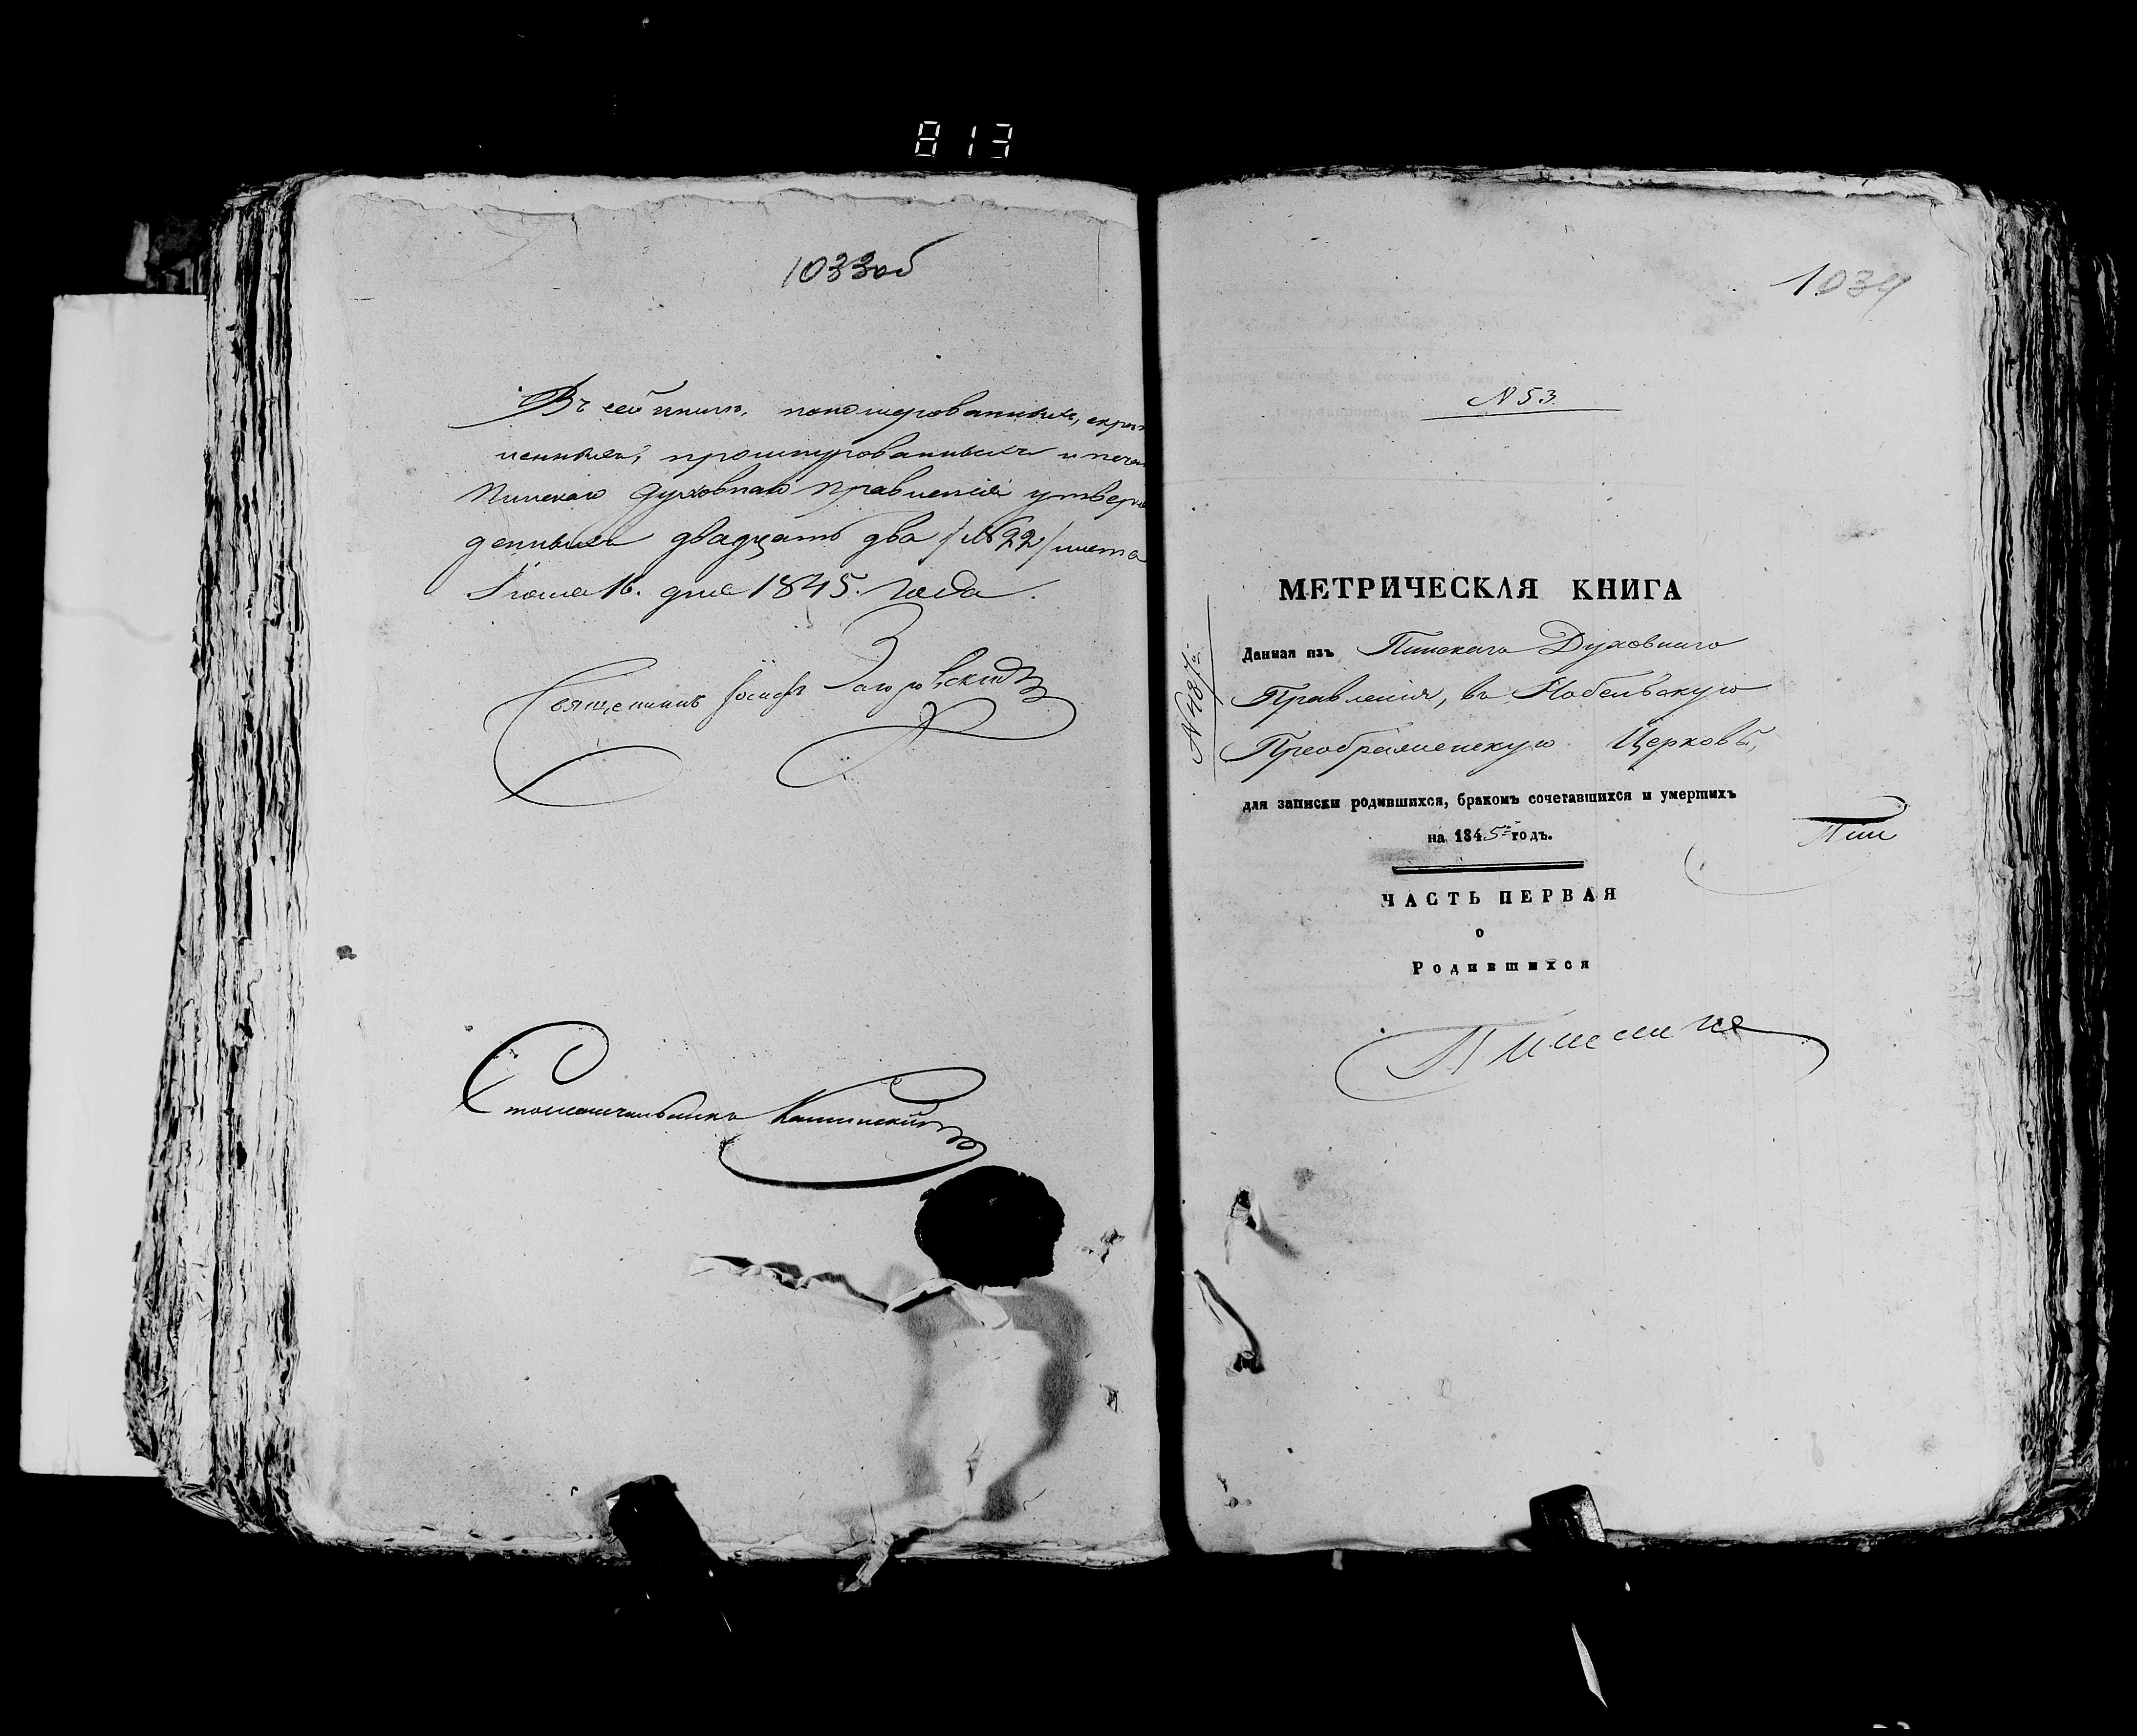 813
1033об
Въ сей книгѣ, нономерованныхъ, скрѣп
ленныхъ, прошнурованныхъ и печа
Пинскаго Духовнаго Правленія утверж
денныхъ двадцать два /№ 22/ листа
16. дня 1845. года.
Священникъ Іосифъ Загоровскій
Столоначальникъ
1034
№ 53
МЕТРИЧЕСКАЯ КНИГА
№ 487
Данная изъ Пинскаго Духовнаго
Правленія, въ Нобельскую
Преображенскую Церковь,
для записки родившихся, бракомъ сочетавшихся и умершихъ
на 1845 годъ.
Пин
ЧАСТЬ ПЕРВАЯ
о
Родившихся